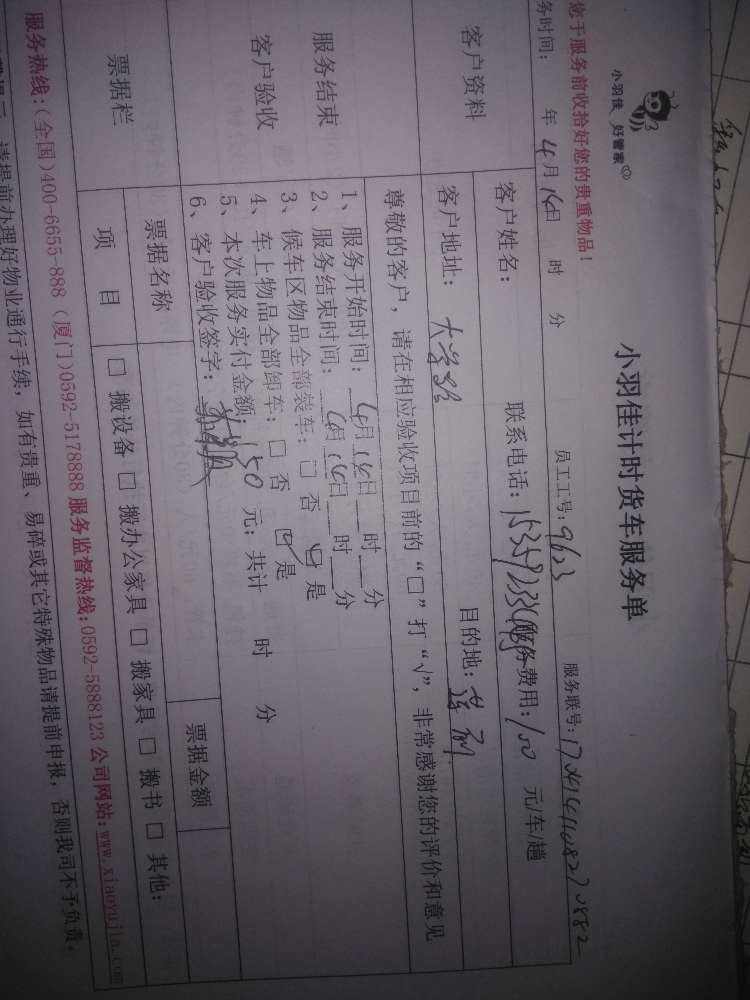 小羽佳 好管家
小羽佳计时货车服务单
您于服务前收拾好您的贵重物品！
务时间： 年 4月 14日 时 分 员工工号：9623 服务联号：
客户资料
客户姓名： 联系电话： 服务费用：150 元/车/趟
客户地址： 大学路 目的地：
服务结束
客户验收
尊敬的客户，请在相应验收项目前的“□”打“√”，非常感谢您的评价和意见
1、服务开始时间： 4月 14日 时 分
2、服务结束时间： 4月 14日 时 分
3、候车区物品全部装车：□ 否 ☑ 是
4、车上物品全部卸车：□ 否 ☑ 是
5、本次服务实付金额：150 元；共计 时 分
6、客户验收签字：
票据栏 票据名称 票据金额
项 目 □ 搬设备 □ 搬办公家具 □ 搬家具 □ 搬书 □ 其他：
服务热线：(全国)400-6655-888 (厦门)0592-5178888 服务监督热线：0592-5888123 公司网站：www.xiaoyujia.com
请提前办理好物业通行手续，如有贵重、易碎或其它特殊物品请提前申报，否则我司不予负责。